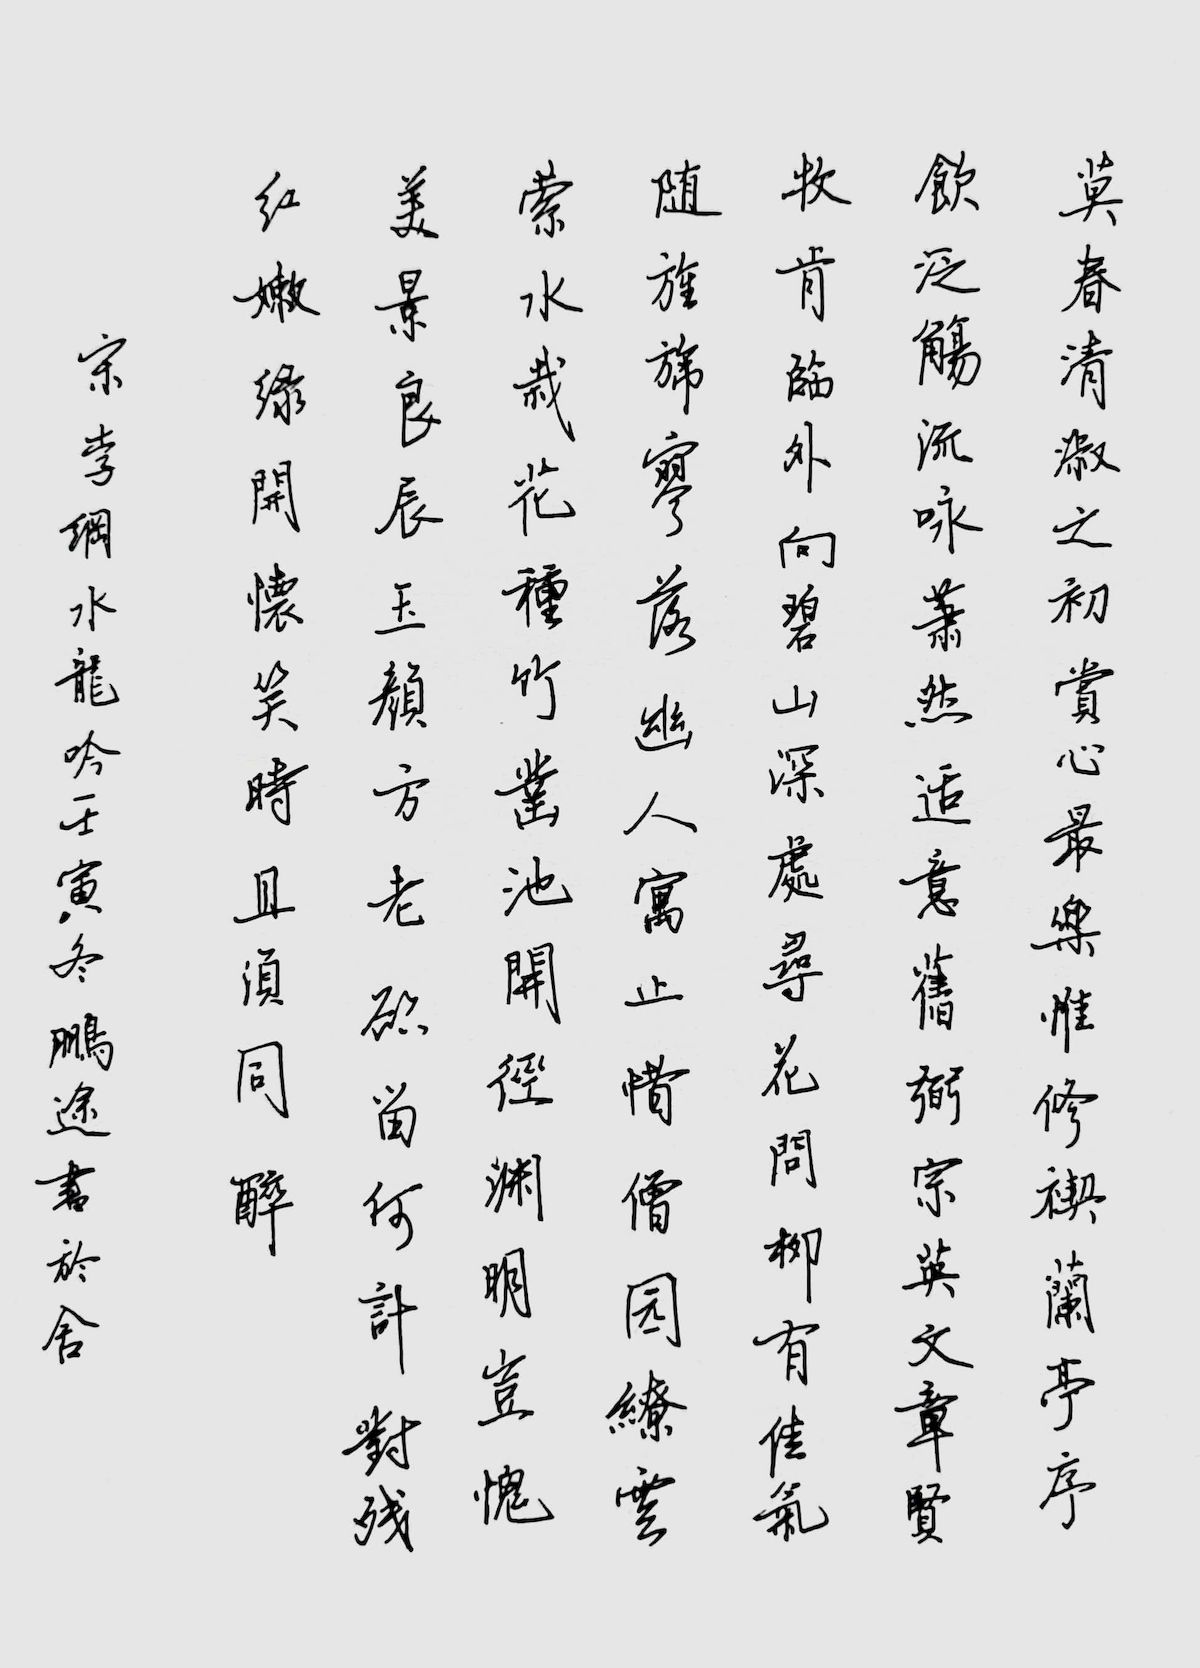 莫春清淑之初賞心最樂惟修禊蘭亭序
飲泛觴流咏蕭然适意舊弼宗英文章賢
牧肯臨外向碧山深處尋花問柳有佳氣
随旌旆寥落幽人寓止惜僧园繚雲
萦水栽花種竹鑿池開徑渊明豈愧
美景良辰玉顏方老欲留何計對残
红嫩绿開懷笑時且須同醉
宗李綱水龍吟壬寅冬鵬途書於舍